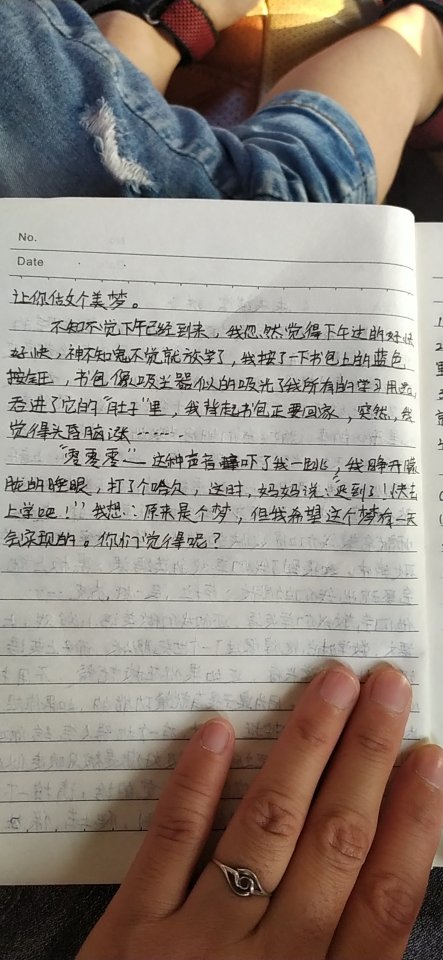 No.
Date
让你做个美梦。
不知不觉下午已经到来，我忽然觉得下午过的好快
好快，神不知鬼不觉就放学了，我按了一下书包上的蓝色
按钮，书包像吸尘器似的吸光了我所有的学习用品，
吞进了它的“肚子”里，我背起书包正要回家，突然，我
觉得头昏脑涨……
“零零零”——这种声音吓了我一跳，我睁开朦
胧的睡眼，打了个哈欠，这时，妈妈说：“迟到了！快去
上学吧！”我想：原来是个梦，但我希望这个梦有一天
会实现的。你们觉得呢？